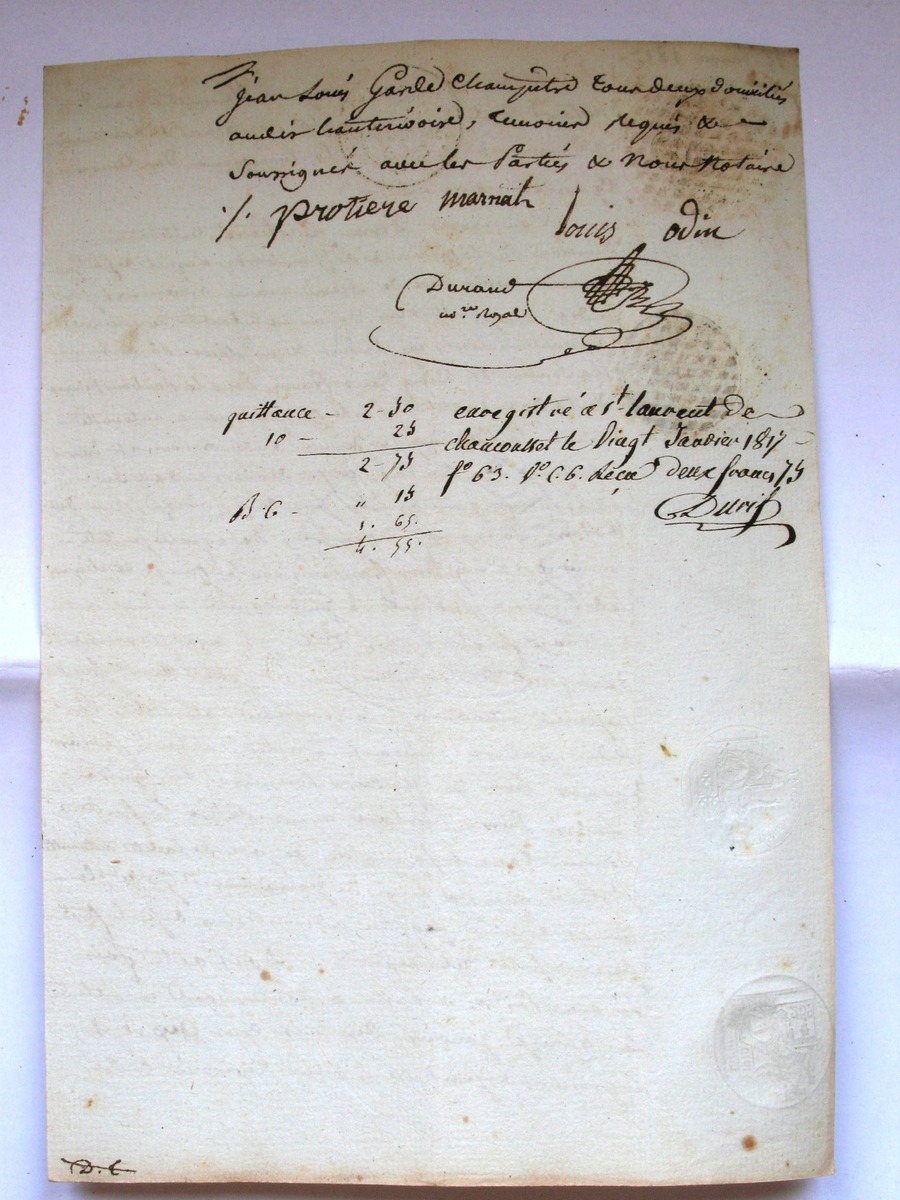 jean Louis Garde Champetre tous deux domiciliés
audit hauterivoire, temoins requis &
soussignés avec les Parties & Nous Notaire
./. protiere marnat louis odin
Durand
no.re Royal
quittance - 2-50
10 - 25
2-75
B.C - " 15
1. 65.
4. 55.
enregistré a st laurent de
chamousset le vingt Janvier 1817
fo 63. vo. C. 6. Recu deux francs 75
Durif